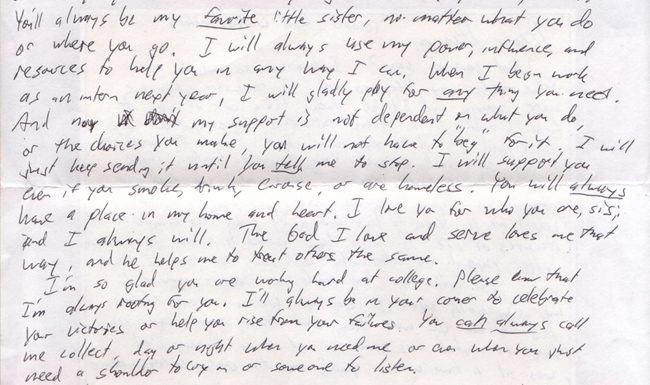 You'll always be my favorite little sister, no matter what you do
or where you go. I will always use my power, influence, and
resources to help you in any way I can. When I begin work
as an intern next year, I will gladly pay for any thing you need.
And my support is not dependent on what you do,
or the choices you make, you will not have to "beg" for it. I will
just keep sending it until you tell me to stop. I will support you
even if you smoke, drink, carouse, or are homeless. You will always
have a place in my home and heart. I love you for who you are, sis;
and I always will. The God I love and serve loves me that
way, and he helps me to treat others the same.
I'm so glad you are working hard at college. Please know that
I'm always rooting for you. I'll always be in your corner to celebrate
your victories or help you rise from your failures. You can always call
me collect, day or night when you need me or even when you just
need a shoulder to cry on or someone to listen.